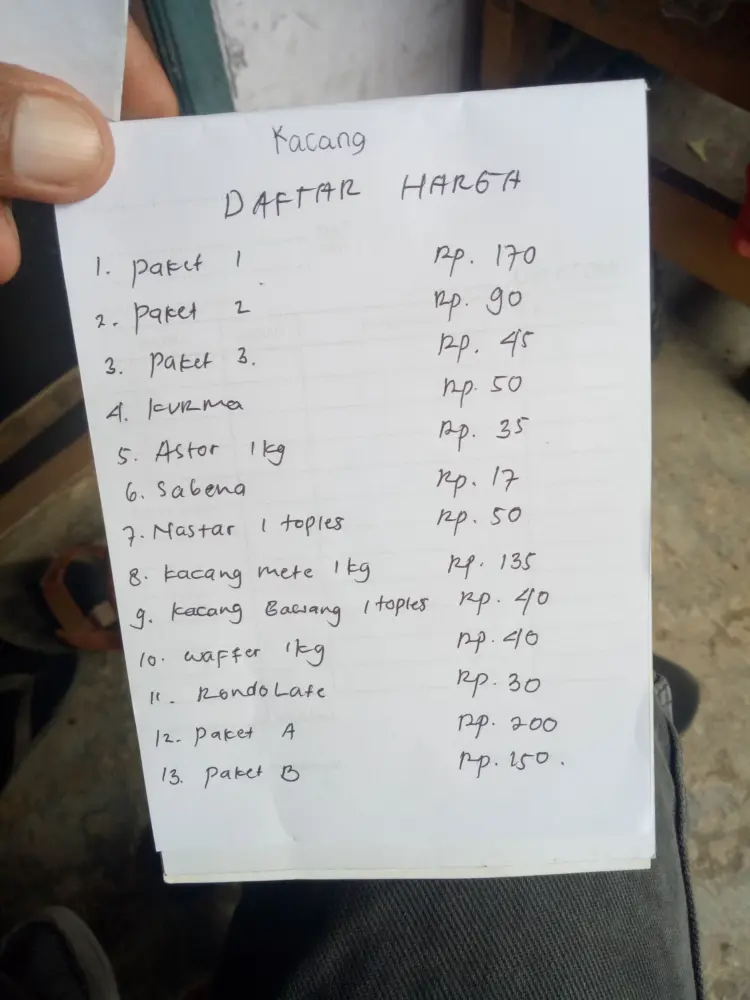 Kacang
DAFTAR HARGA
1. Paket 1 Rp. 170
2. Paket 2 Rp. 90
3. Paket 3. Rp. 45
4. KURMA Rp. 50
5. Astor 1 kg Rp. 35
6. Sabena Rp. 17
7. Nastar 1 toples Rp. 50
8. Kacang mete 1 kg Rp. 135
9. Kacang Bawang 1 toples Rp. 40
10. Waffer 1 kg Rp. 40
11. RondoLate Rp. 30
12. Paket A Rp. 200
13. Paket B Rp. 150.